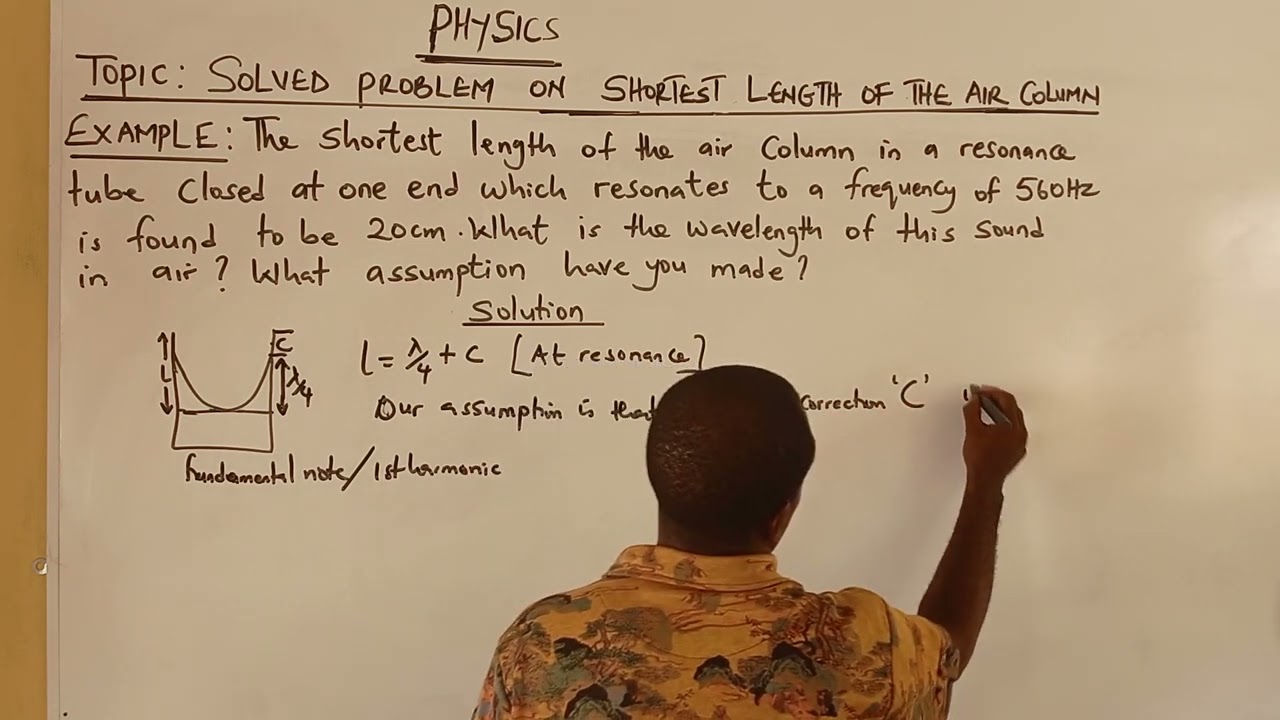 PHYSICS
TOPIC: SOLVED PROBLEM ON SHORTEST LENGTH OF THE AIR COLUMN
EXAMPLE: The shortest length of the air Column in a resonance
tube closed at one end which resonates to a frequency of 560Hz
is found to be 20cm. What is the wavelength of this sound
in air? What assumption have you made?
Solution
L
C
λ/4
l = λ/4 + C [At resonance]
Our assumption is that correction 'C'
fundamental note/1st harmonic